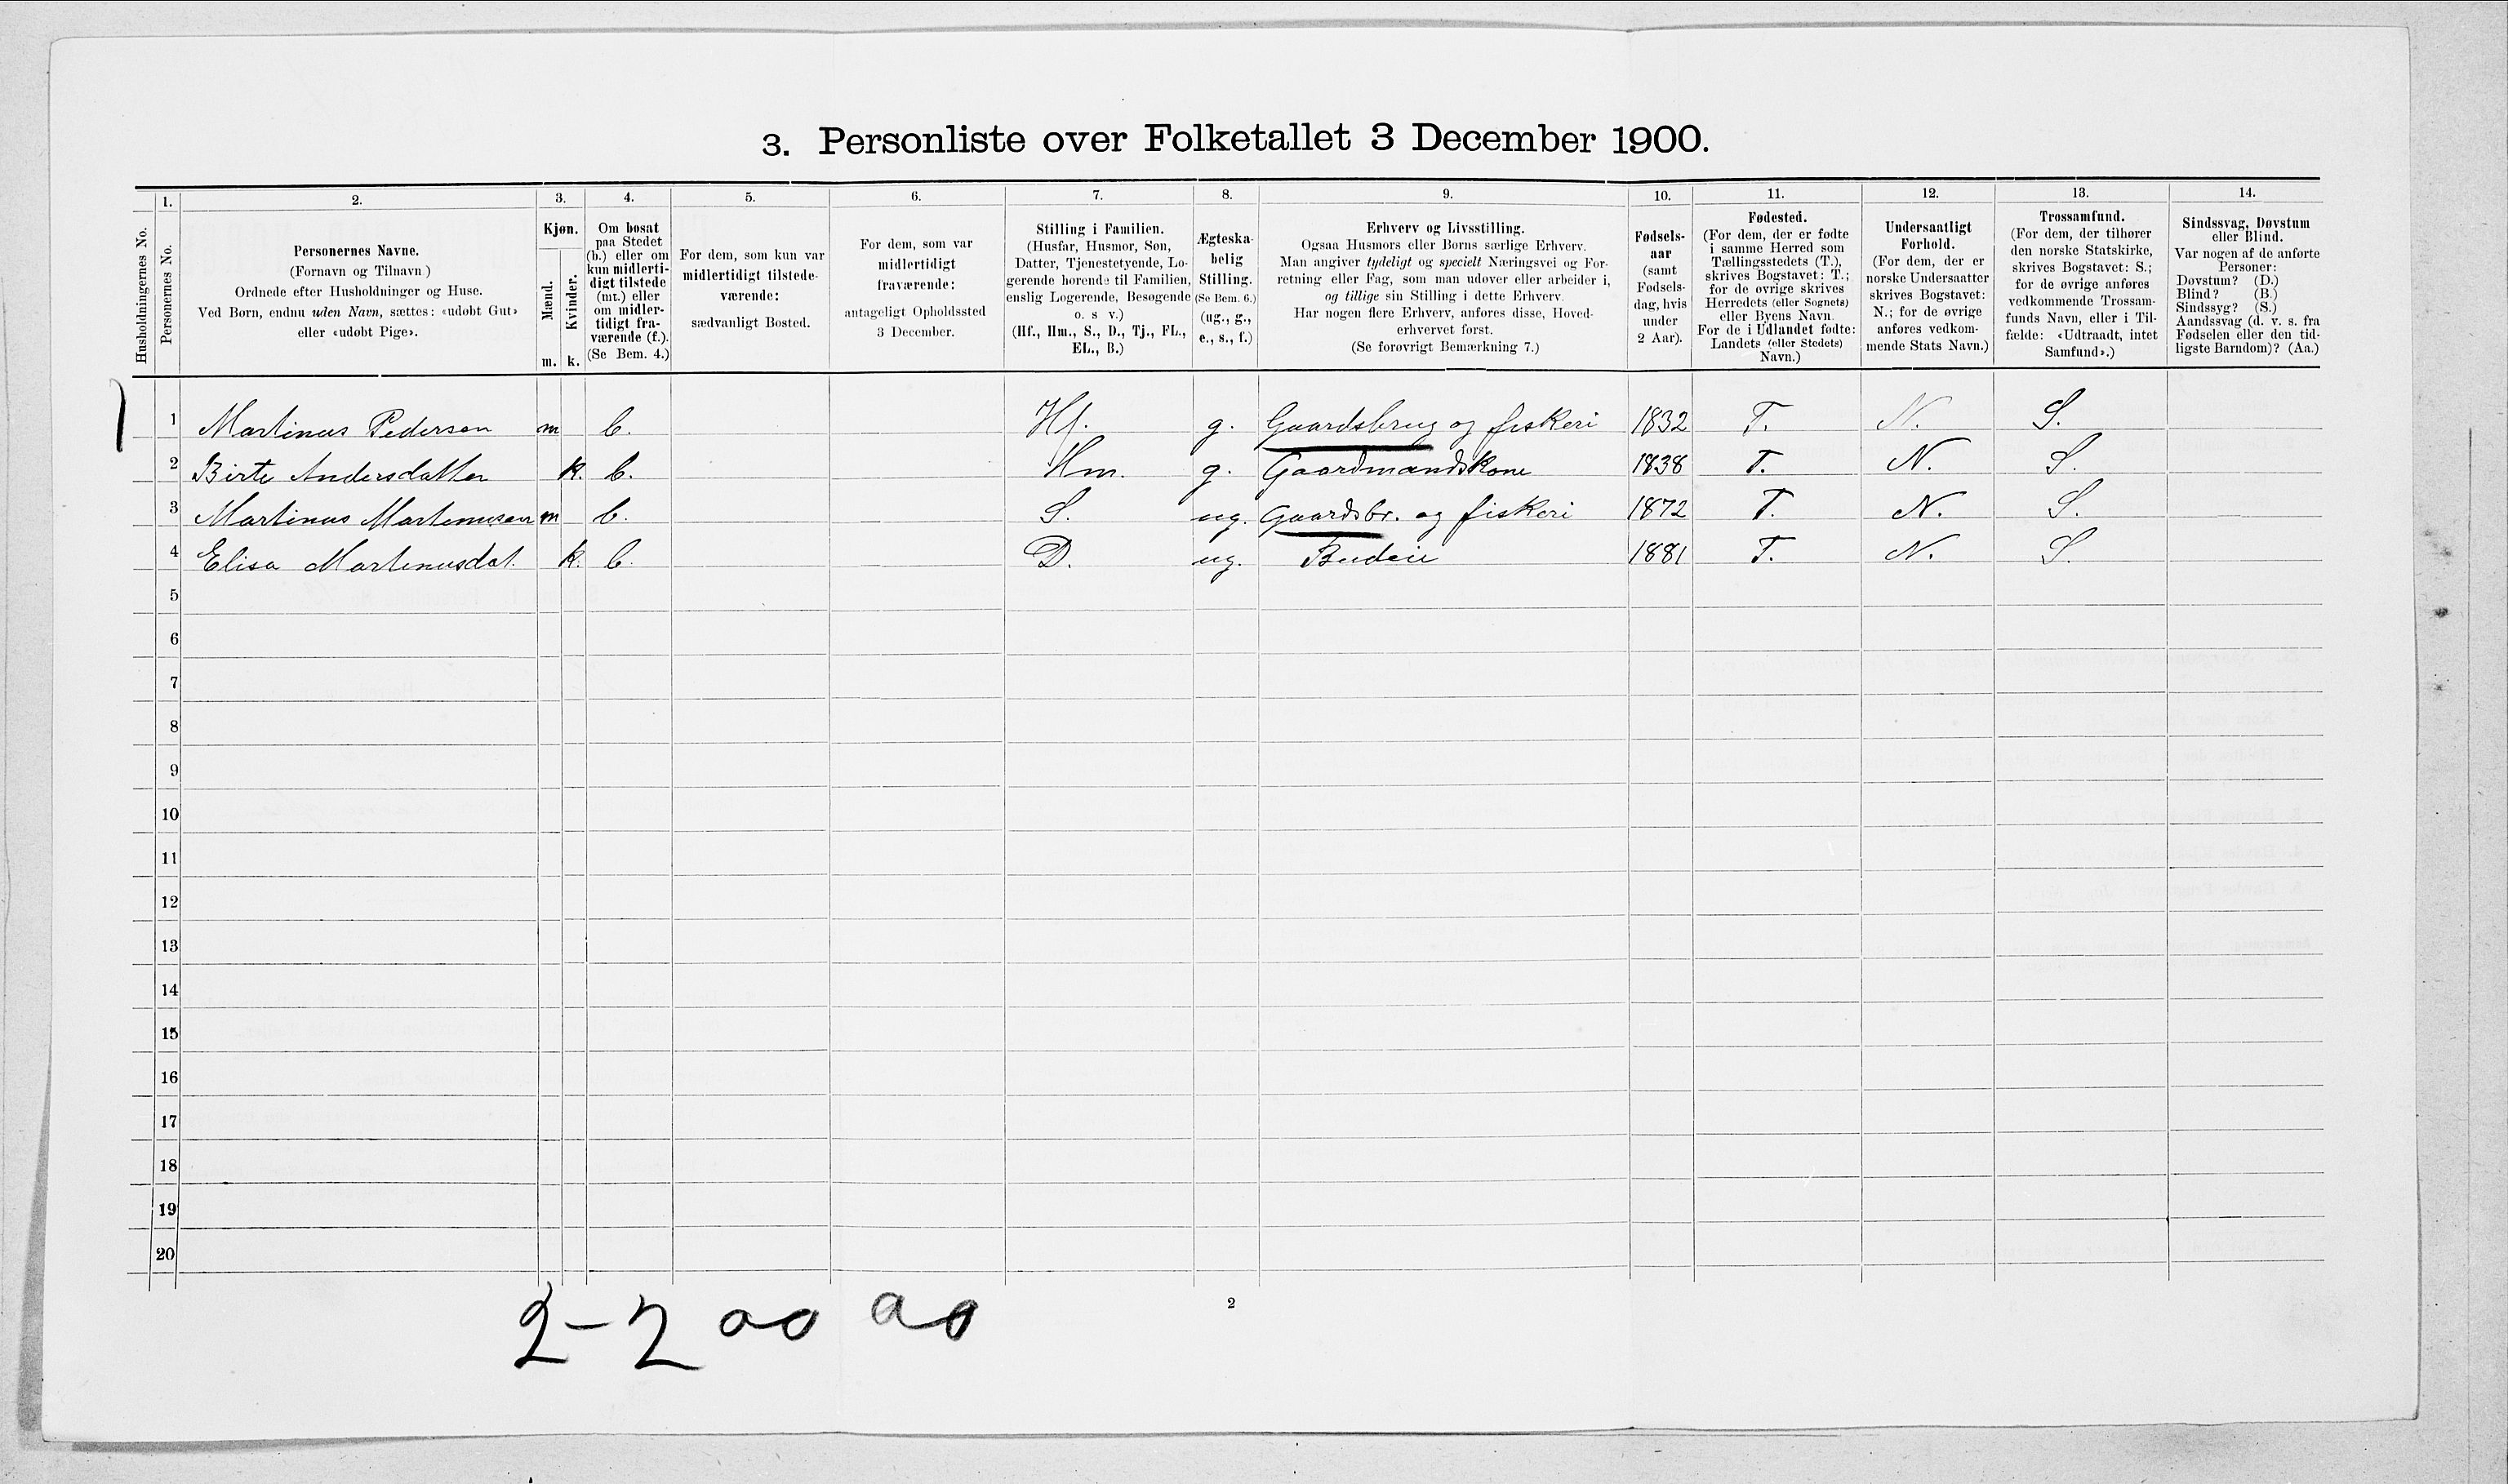 3. Personliste over Folketallet 3 December 1900.
Husholdningernes No.
1.
Personernes No.
2.
Personernes Navne.
(Fornavn og Tilnavn)
Ordnede efter Husholdninger og Huse.
Ved Børn, endnu uden Navn, sættes: «udøbt Gut»
eller «udøbt Pige».
3.
Kjøn.
Mænd.
Kvinder.
m. k.
4.
Om bosat
paa Stedet
(b.) eller om
kun midlerti-
digt tilstede
(mt.) eller
om midler-
tidigt fra-
værende (f.).
(Se Bem. 4.)
5.
For dem, som kun var
midlertidigt tilstede-
værende:
sædvanligt Bosted.
6.
For dem, som var
midlertidigt
fraværende:
antageligt Opholdssted
3 December.
7.
Stilling i Familien.
(Husfar, Husmor, Søn,
Datter, Tjenestetyende, Lo-
gerende hørende til Familien,
enslig Logerende, Besøgende
o. s v.)
(Hf., Hm., S., D., Tj., FL.,
EL., B.)
8.
Ægteska-
belig
Stilling.
(Se Bem. 6.)
(ug., g.,
e., s., f.)
9.
Erhverv og Livsstilling.
Ogsaa Husmors eller Børns særlige Erhverv.
Man angiver tydeligt og specielt Næringsvei og For-
retning eller Fag, som man udøver eller arbeider i,
og tillige sin Stilling i dette Erhverv.
Har nogen flere Erhverv, anføres disse, Hoved-
erhvervet først.
(Se forøvrigt Bemærkning 7.)
10.
Fødsels-
aar
(samt
Fødsels-
dag, hvis
under
2 Aar).
11.
Fødested.
(For dem, der er fødte
i samme Herred som
Tællingsstedets (T.),
skrives Bogstavet: T.;
for de øvrige skrives
Herredets (eller Sognets)
eller Byens Navn.
For de i Udlandet fødte:
Landets (eller Stedets)
Navn.)
12.
Undersaatligt
Forhold.
(For dem, der er
norske Undersaatter
skrives Bogstavet:
N.; for de øvrige
anføres vedkom-
mende Stats Navn.)
13.
Trossamfund.
(For dem, der tilhører
den norske Statskirke,
skrives Bogstavet: S.;
for de øvrige anføres
vedkommende Trossam-
funds Navn, eller i Til-
fælde: «Udtraadt, intet
Samfund».)
14.
Sindssvag, Døvstum
eller Blind.
Var nogen af de anførte
Personer:
Døvstum? (D.)
Blind? (B.)
Sindssyg? (S.)
Aandssvag (d. v. s. fra
Fødselen eller den tid-
ligste Barndom)? (Aa.)
1 Martinus Pedersen m b. Hf. g. Gaardsbrug og fiskeri 1832 T. N. S.
2 Birte Andersdatter k. b. Hm. g. Gaardmandskone 1838 T. N. S.
3 Martinus Martinusen m b. S. ug. Gaardsbr. og fiskeri 1872 T. N. S.
4 Elisa Martinusdat. k. b. D. ug. Budeie 1881 T. N. S.
5
6
7
8
9
10
11
12
13
14
15
16
17
18
19
20
2
2-2 00 00